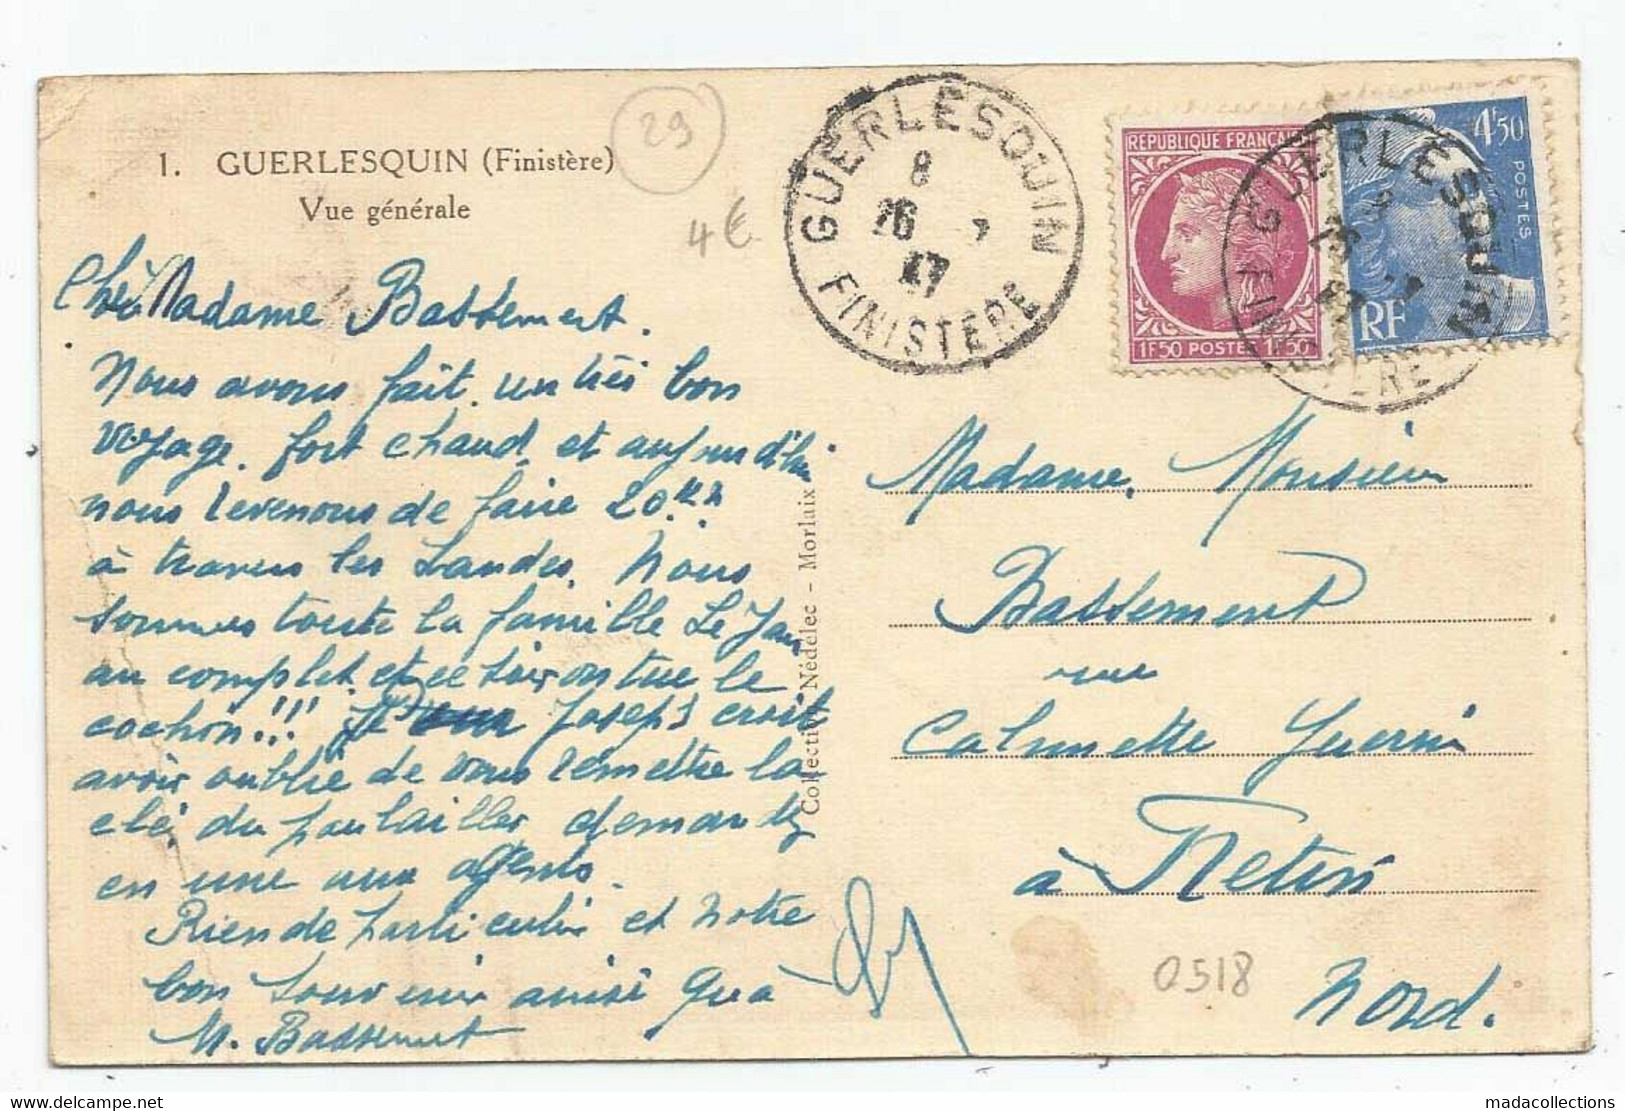 1. GUERLESQUIN (Finistère)
Vue générale
29
4€
GUERLESQUIN
8
26 - 7
47
FINISTERE
REPUBLIQUE FRANÇAISE
1F50 POSTES 1F50
4F50
POSTES
RF
GUERLESQUIN
FINISTERE
Chère Madame Bassement.
Nous avons fait un très bon
voyage, fort chaud et aujourd'hui
nous revenons de faire 20
à travers les Landes. Nous
sommes toute la famille Le Jan
au complet et ce soir on tue le
cochon!!! Joseph croit
avoir oublié de vous remettre la
clé du poulailler demandez
en une aux agents.
Rien de particulier et notre
bon souvenir ainsi qu'à
M. Bassement
Collection Nédélec - Morlaix
Madame, Monsieur
Bassement
rue
Calmette Guerin
à
Nord.
0518
madacollections